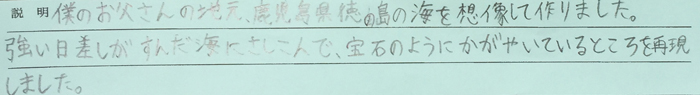 説明 僕のお父さんの地元、鹿児島県徳の島の海を想像して作りました。
強い日差しがすんだ海にさしこんで、宝石のようにかがやいているところを再現
しました。